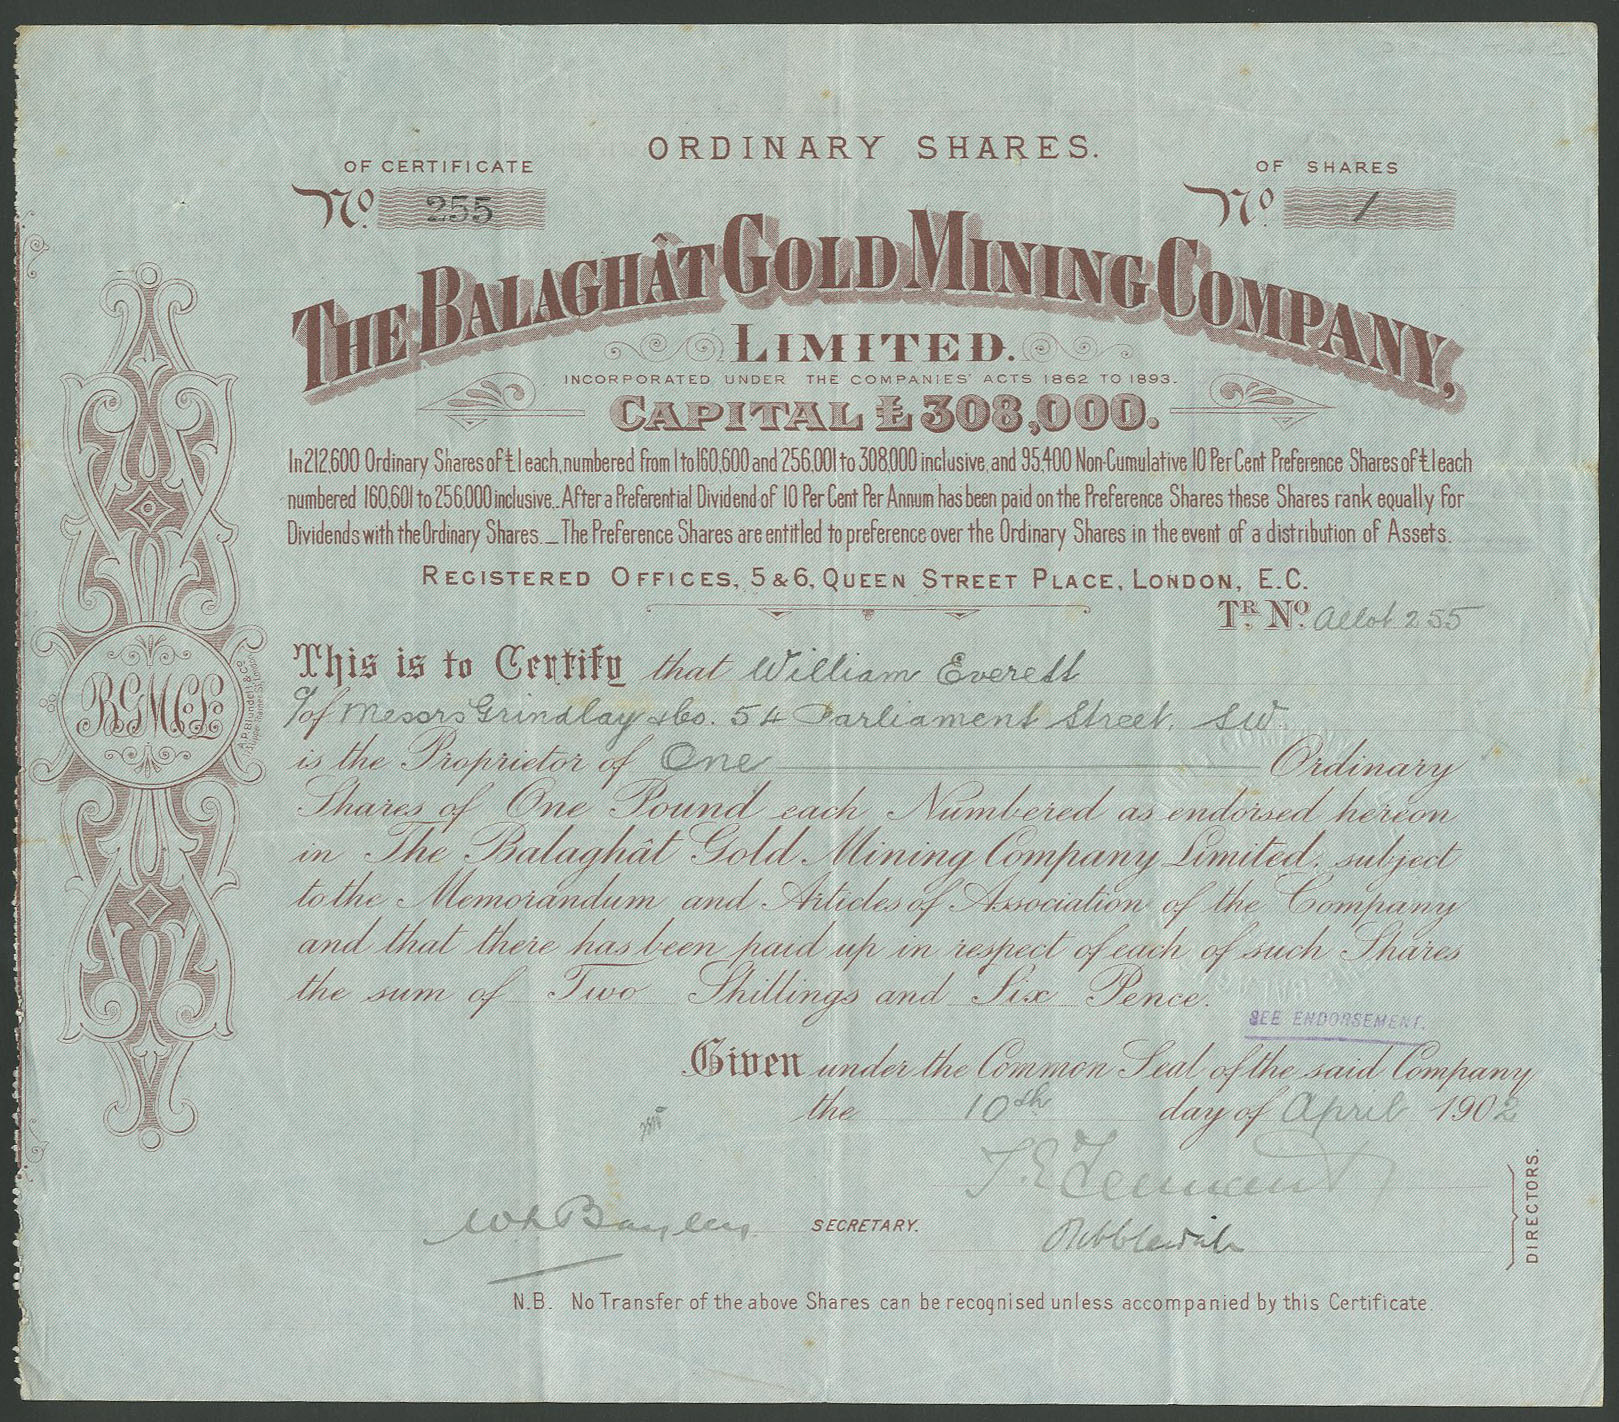 ORDINARY SHARES.
OF CERTIFICATE
No. 255
OF SHARES
No. 1
THE BALAGHÂT GOLD MINING COMPANY,
LIMITED.
INCORPORATED UNDER THE COMPANIES' ACTS 1862 TO 1893.
CAPITAL £308,000.
In 212,600 Ordinary Shares of £1 each, numbered from 1 to 160,600 and 256,001 to 308,000 inclusive, and 95,400 Non-Cumulative 10 Per Cent Preference Shares of £1 each
numbered 160,601 to 256,000 inclusive. After a Preferential Dividend of 10 Per Cent Per Annum has been paid on the Preference Shares these Shares rank equally for
Dividends with the Ordinary Shares. _ The Preference Shares are entitled to preference over the Ordinary Shares in the event of a distribution of Assets.
REGISTERED OFFICES, 5 & 6, QUEEN STREET PLACE, LONDON, E.C.
TR. No. Allot 255
This is to Certify that William Everett
c/o of Messrs Grindlay & Co. 54 Parliament Street, SW
is the Proprietor of One Ordinary
Shares of One Pound each Numbered as endorsed hereon
in The Balaghât Gold Mining Company Limited, subject
to the Memorandum and Articles of Association of the Company
and that there has been paid up in respect of each of such Shares
the sum of Two Shillings and Six Pence.
SEE ENDORSEMENT.
Given under the Common Seal of the said Company
the 10th day of April 1902
T. E. Tennant
DIRECTORS.
SECRETARY.
N.B. No Transfer of the above Shares can be recognised unless accompanied by this Certificate.
B G M Co Ld
A.P. Blundell & Co.